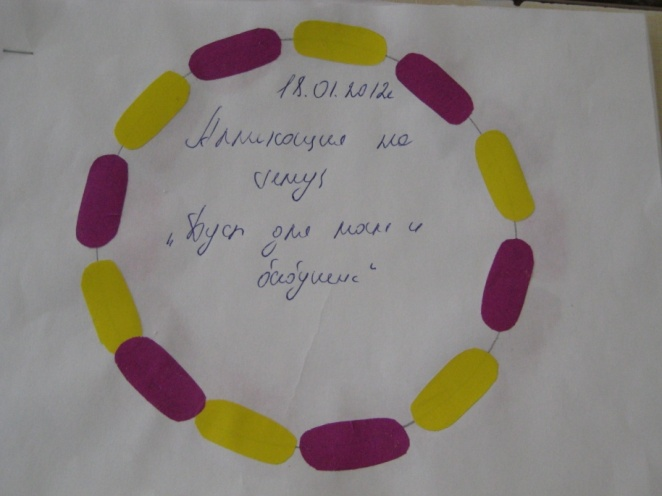 18.01.2012г
Аппликация на
тему
„Бусы для мам и
бабушек“